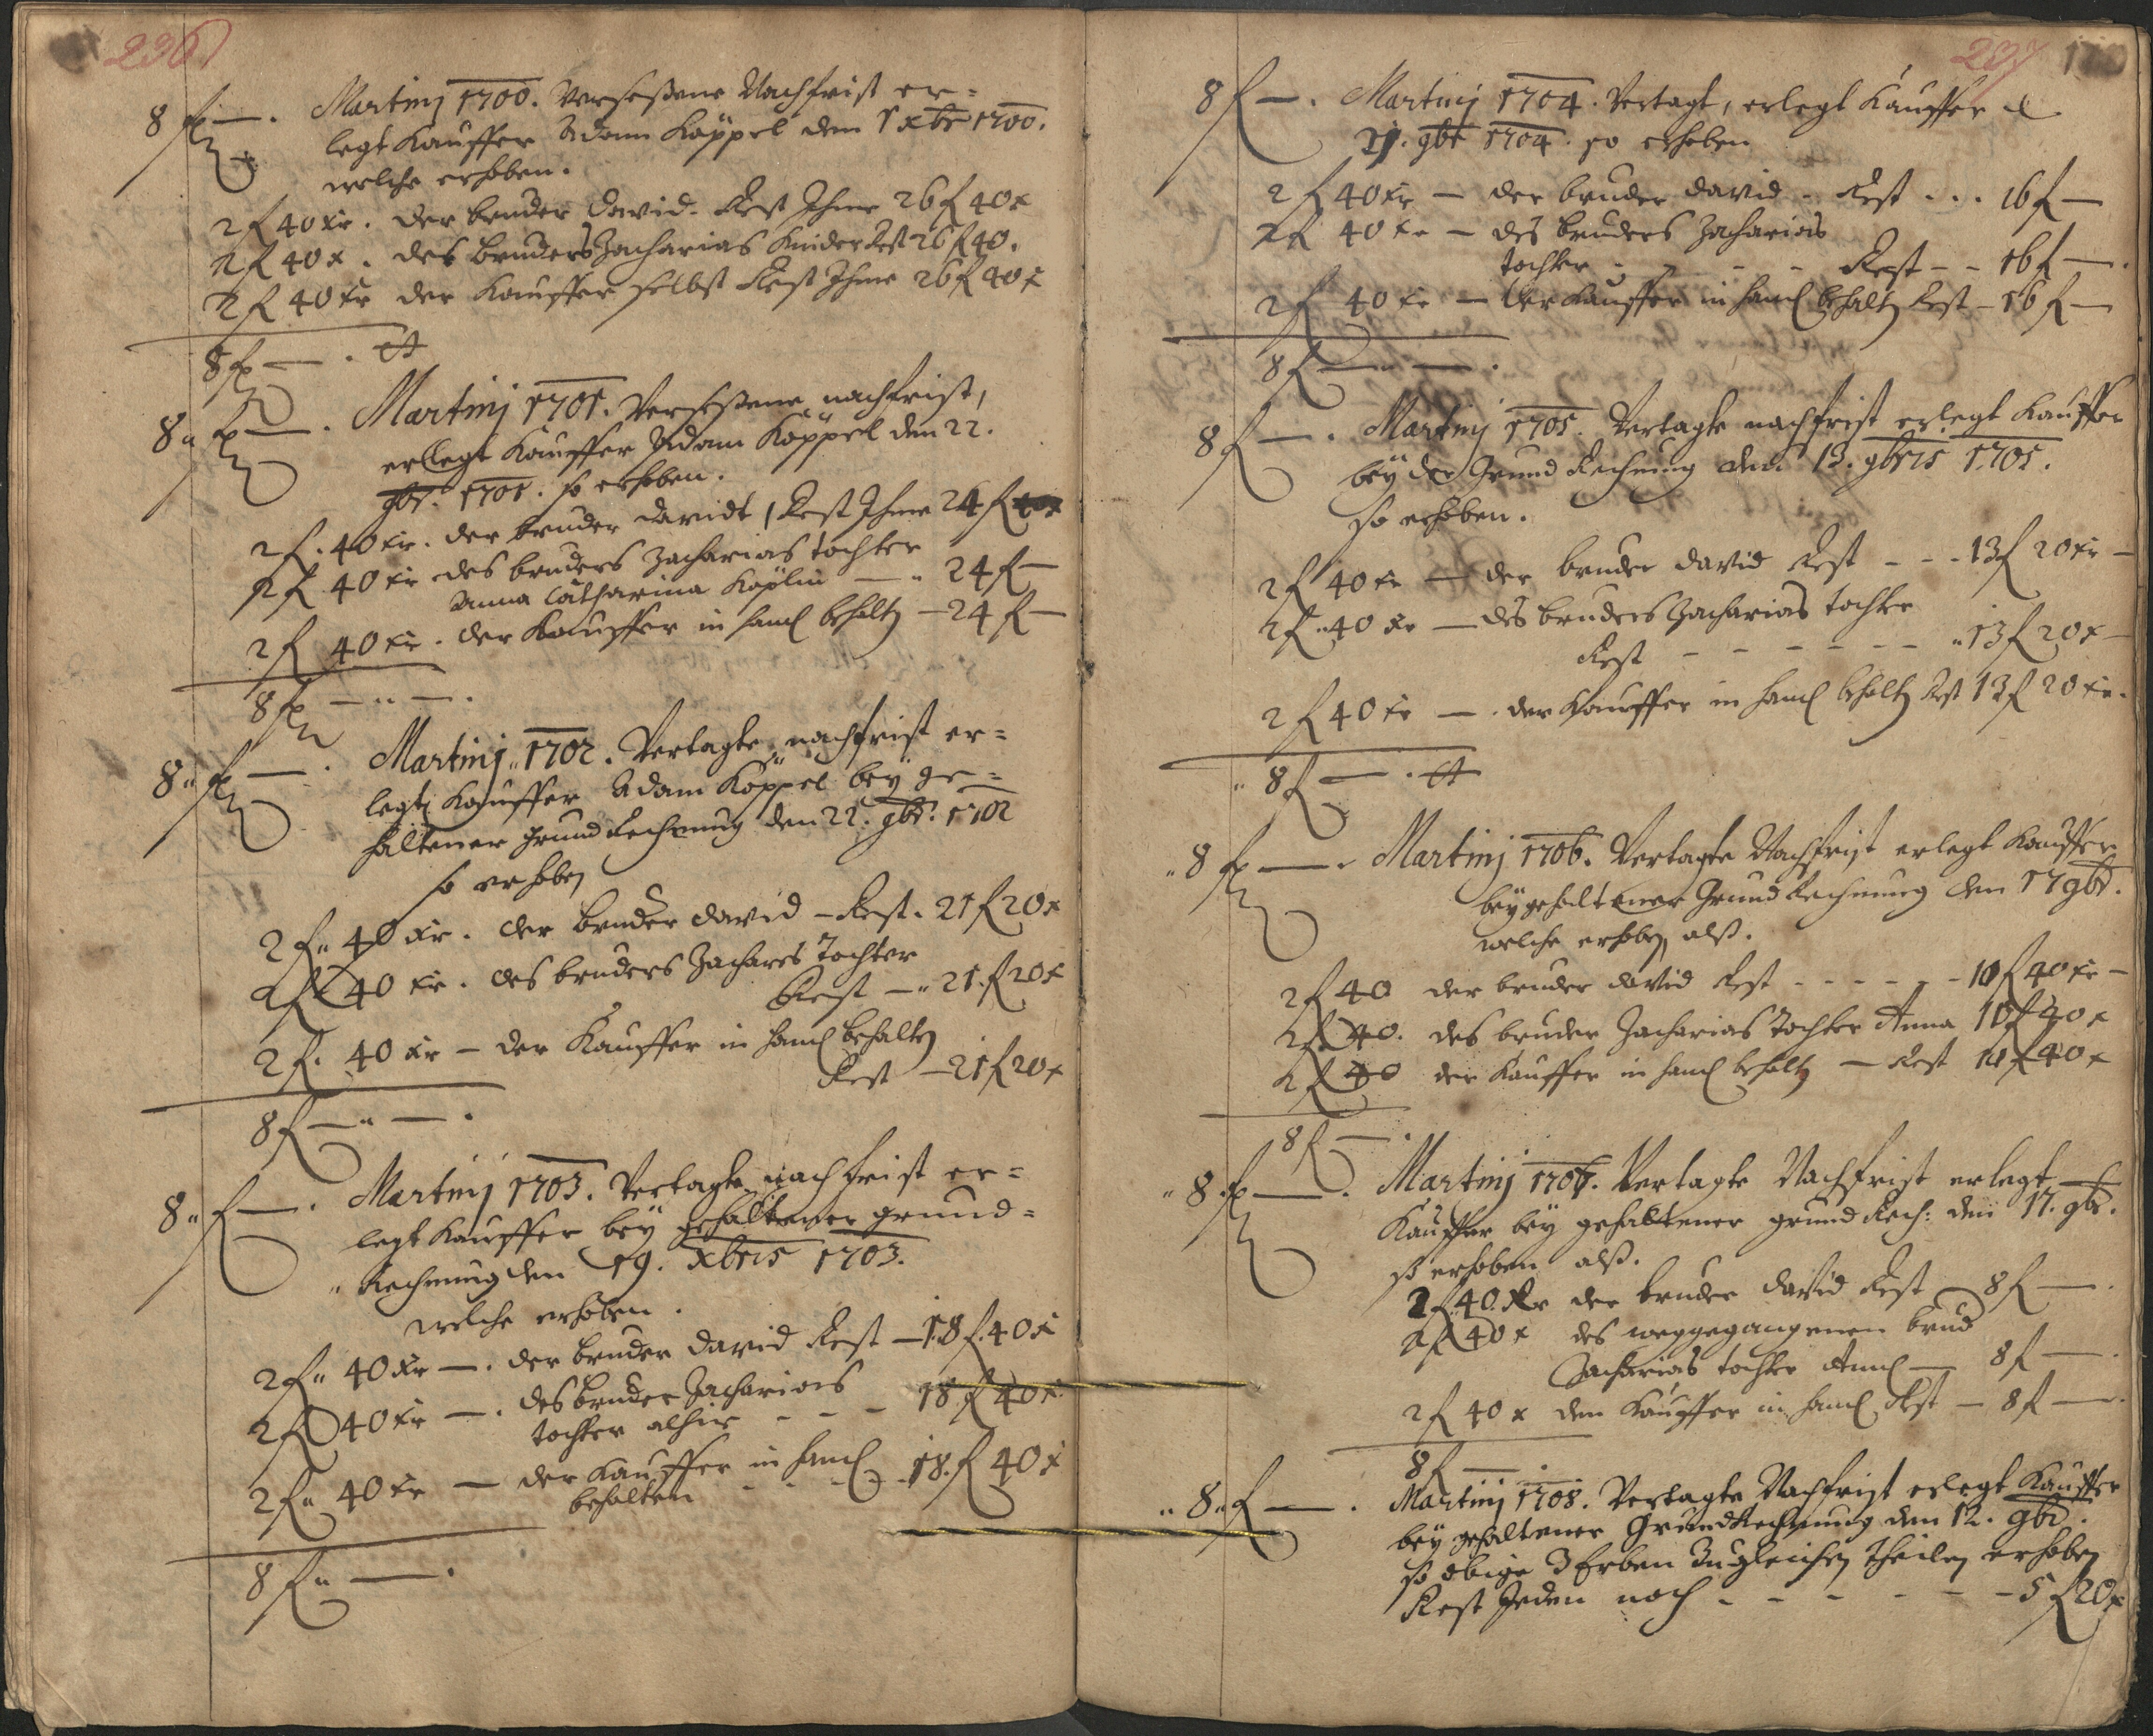 236
8 f — . Martinj 1700. Versessene Nachfrist er=
legt Kauffer Adam Köppel den 1 xbr 1700.
welche erhoben.
2 f 40 xr. der bruder David. Rest Ihme 26 f 40 x
2 f 40 x. des Bruders Zacharias Kinder Rest 26 f 40.
2 f 40 xr der Kauffer selbst Rest Ihme 26 f 40 x
8 f — .
8 " f — . Martinj 1701. Versessene nachfrist,
erlegt Kauffer Adam Köppel den 22.
gbr. 1701. so erhoben.
2 f. 40 xr. der bruder Davidt, Rest Ihme 24 f
2 f 40 xr des bruders Zacharias tochter
Anna Catharina Köplin — " 24 f —
2 f 40 xr. der Kauffer in Hand behalten — 24 f —
8 f — " — .
8 " f — . Martinj " 1702. Vertagte nachfrist er=
legt Kauffer Adam Köppel bey ge=
haltener grund Rechnung den 22. gbr. 1702
so erhoben
2 f " 40 xr. der bruder David – Rest. 21 f 20 x
2 f 40 xr. des bruders Zachares Tochter
Rest — " 21. f 20 x
2 f. 40 xr – der Kauffer in Hand behalten
Rest — 21 f 20 x
8 f — " — .
8 " f — . Martinj 1703. Vertagte nachfrist er=
legt Kauffer bey gehaltener grund=
Rechnung den 19. xbris 1703.
welche erhoben.
2 f " 40 xr — . der bruder David Rest — 18 f. 40 x
2 f 40 xr — . des bruder Zacharias
tochter alhie - - - 18 f 40 x.
2 f " 40 xr — der Kauffer in Hand
behalten - - - 18. f 40 x
8 f " — .
237
8 f — . Martinj 1704. Vertagt, erlegt Kauffer d
gbr 1704. so erhoben
2 f 40 xr — der bruder David - Rest . . . 16 f —
2 f 40 xr — des bruders Zacharias
tochter - - - - Rest - - 16 f — .
2 f 40 xr — der Kauffer in Hand behalten Rest – 16 f —
8 f — " — .
8 f — . Martinj 1705. Vertagte nachfrist erlegt Kauffer
bey der Grund Rechnung den 13. gbris 1705.
so erhoben.
2 f 40 xr — der bruder David Rest - - - 13 f 20 xr —
2 f " 40 xr — des bruders Zacharias tochter
Rest - - - - - - " 13 f 20 x —
2 f 40 xr — . der Kauffer in Hand behalten Rest 13 f 20 xr.
" 8 f — .
" 8 f — . Martinj 1706. Vertagte Nachfrist erlegt Kauffer
bey gehaltener Grund Rechnung den 17 gbr.
welche erhoben, alß.
2 f 40 der bruder David Rest - - - - - - 10 f 40 xr —
2 f 40. des bruder Zacharias Tochter Anna 10 f 40 x
2 f 40 der Kauffer in Hand behalten — Rest 10 f 40 x
8 f — .
" 8 f — . Martinj 1707. Vertagte Nachfrist erlegt
Kauffer bey gehaltener grund Rech: den 17. gbr.
so erhoben alß.
2 f. 40. xr der bruder David Rest — 8 f — .
2 f 40 x des weggegangenen brud
Zacharias tochter Anna — 8 f — .
2 f 40 x dem Kauffer in Hand Rest — 8 f — .
8 f — .
" 8 " f — . Martinj 1708. Vertagte Nachfrist erlegt Kauffer
bey gehaltener Grund Rechnung den 12. gbr.
so obige 3 Erben Zu gleichen Theilen erhoben
Rest Jeden noch - - - - - - 5 f 20 x